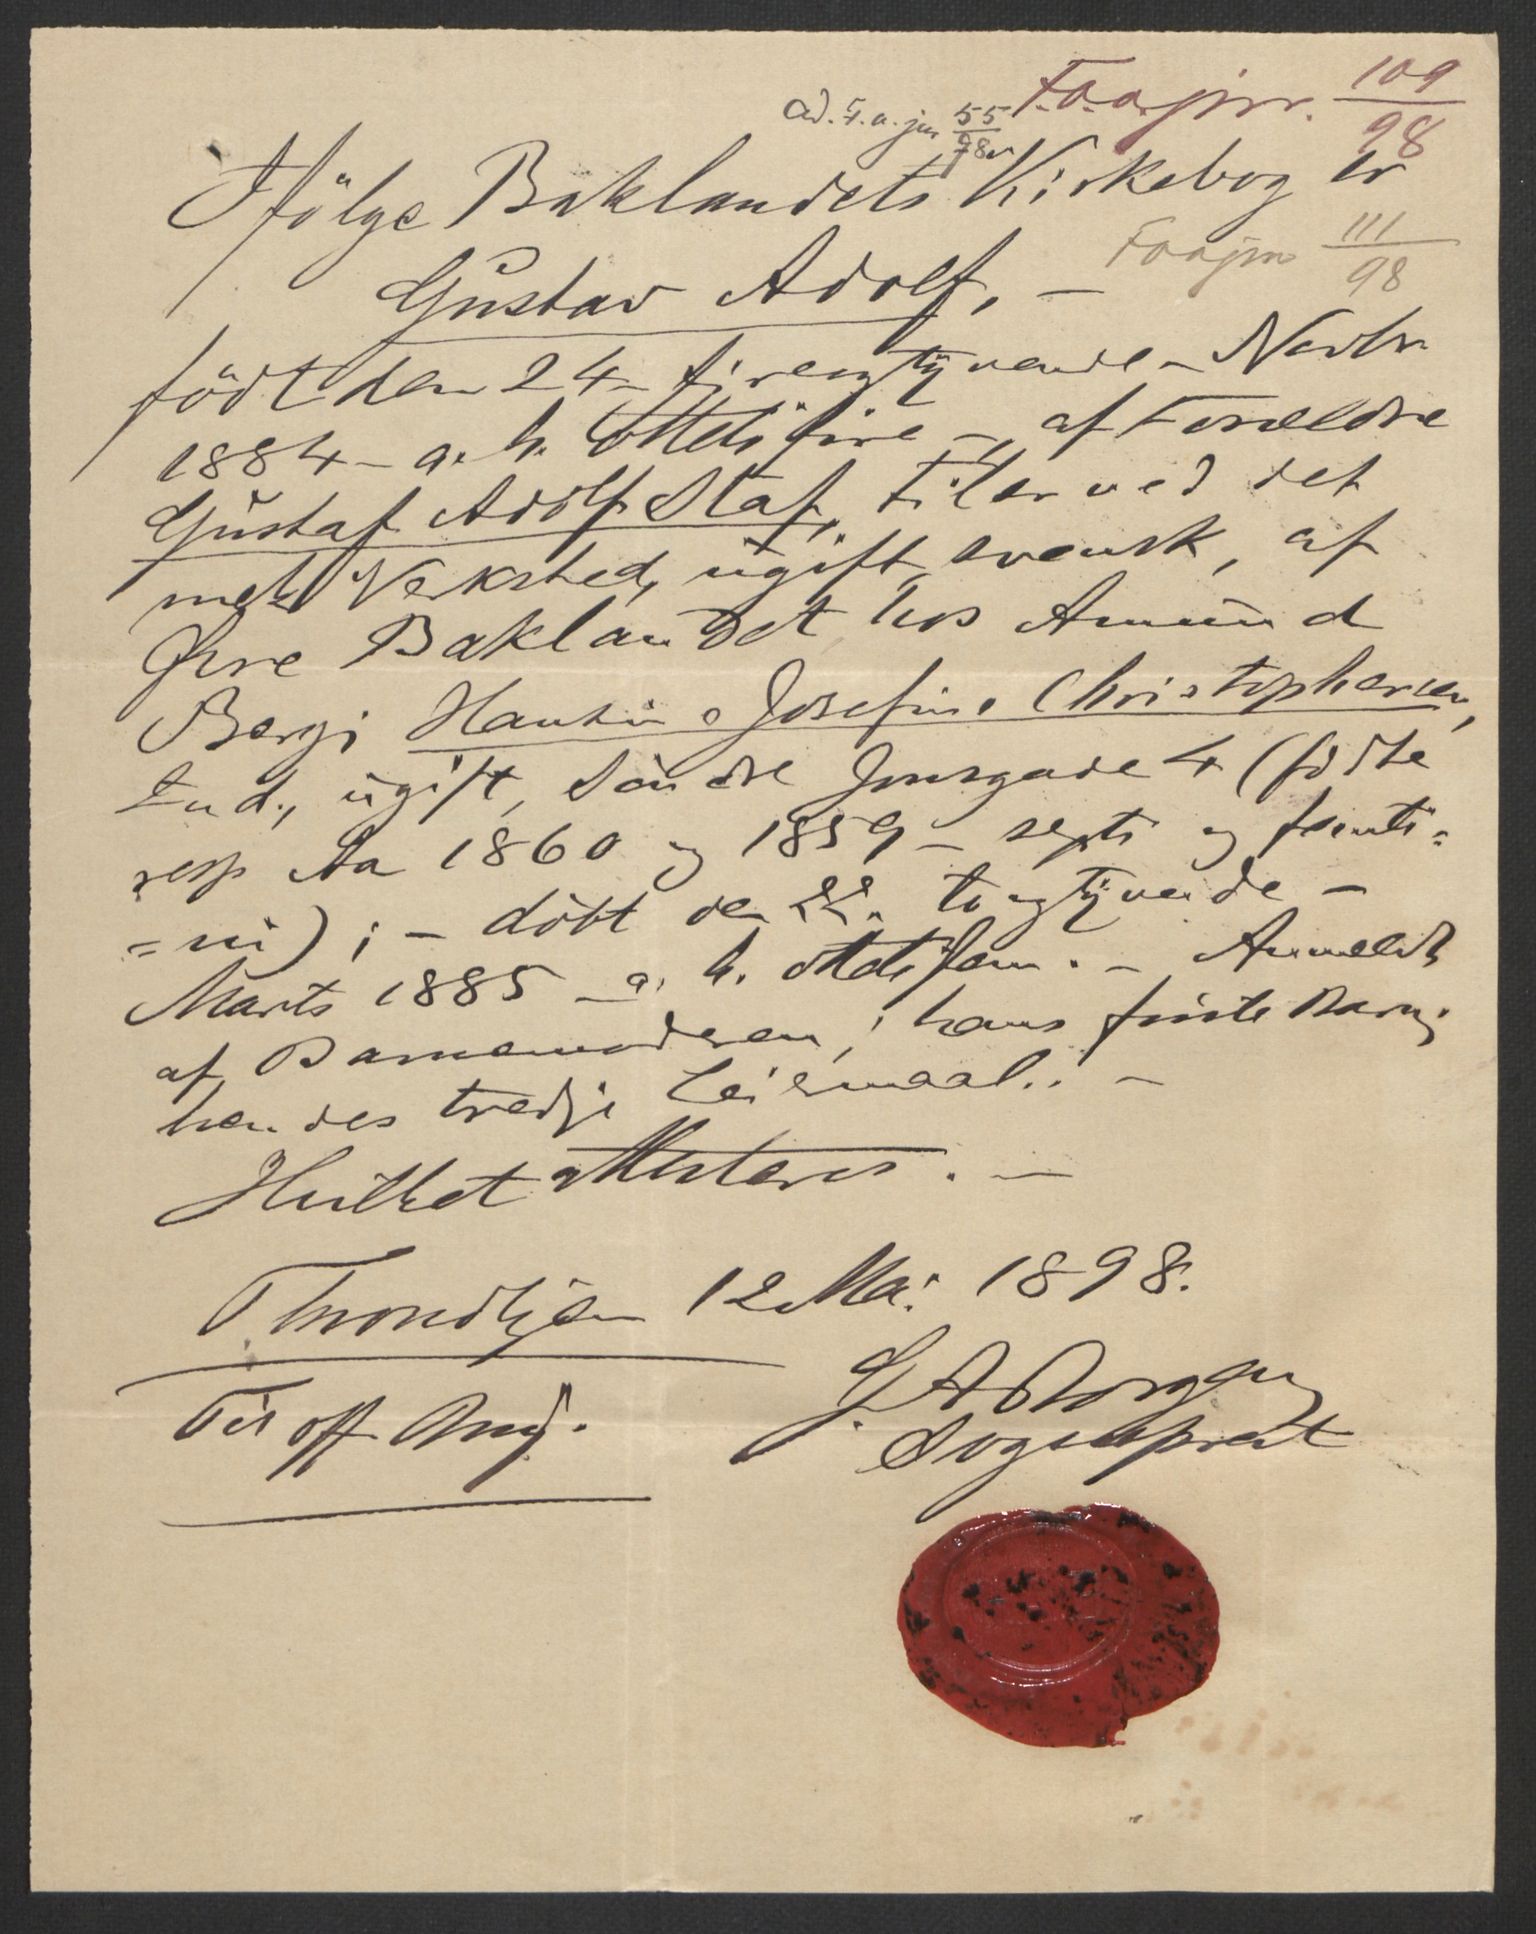 ad. F.a. jnr 55/98
F.a.a. jnr. 109/98
Ifölge Baklandets Kirkebog er
Faajnr 111/98
Gustav Adolf, –
födt den 24 – fireogtyvende – Novbr
1884 – a. h. ottetifire – , af Forældre
Gustaf Adolf Staf, Filer ved det
mek Verksted, ugift, svensk, af
Övre Baklandet hos Amund
Berg; Hansine Josefine Christophersen,
Ind., ugift, Söndre Jonsgade 4 (födte
resp Aa 1860 og 1859 – segsti og femti-
=ni) ; – döbt den 22. toogtyvende –
Marts 1885 – a. h. ottetifem. – Anmeldt
af Barnemoderen; hans förste Barn;
hendes tredje Leiermaal. –
Hvilket attesteres. –
Throndhjem 12 Mai 1898.
Til off. Brug.
Sogneprest